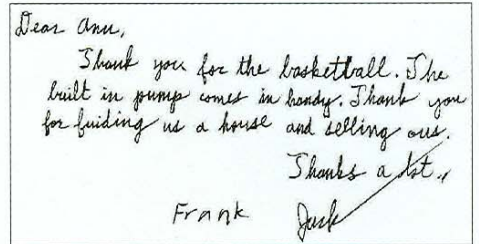 Dear Anu,
Thank you for the basketball. The
built in pump comes in handy. Thank you
for fuiding us a house and selling ours.
Thanks a lot,
Frank Jack